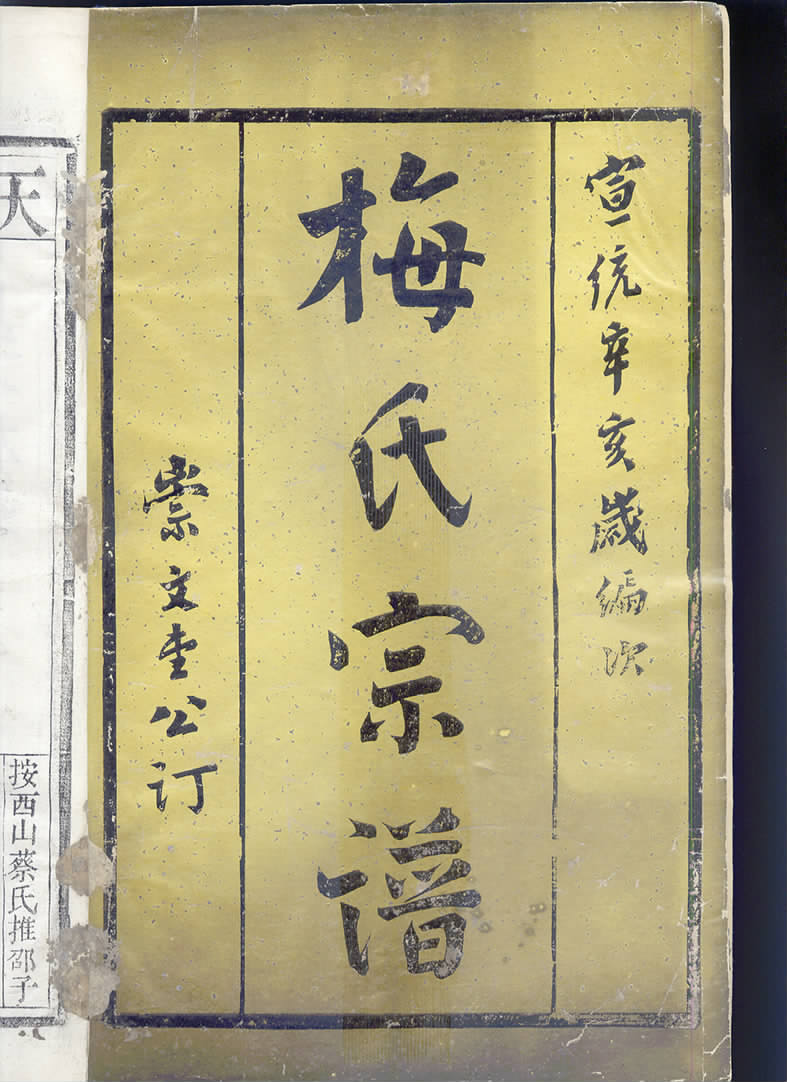 宣統辛亥歲編次
梅氏宗譜
崇文堂公订
天
按西山蔡氏推邵子